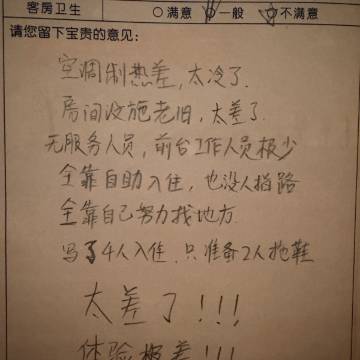 客房卫生 ○满意 ○一般 ○不满意
请您留下宝贵的意见:
空调制热差,太冷了.
房间设施老旧,太差了.
无服务人员,前台工作人员极少
全靠自助入住,也没人指路
全靠自己努力找地方
写了4人入住.只准备2人拖鞋
太差了!!!
体验极差!!!